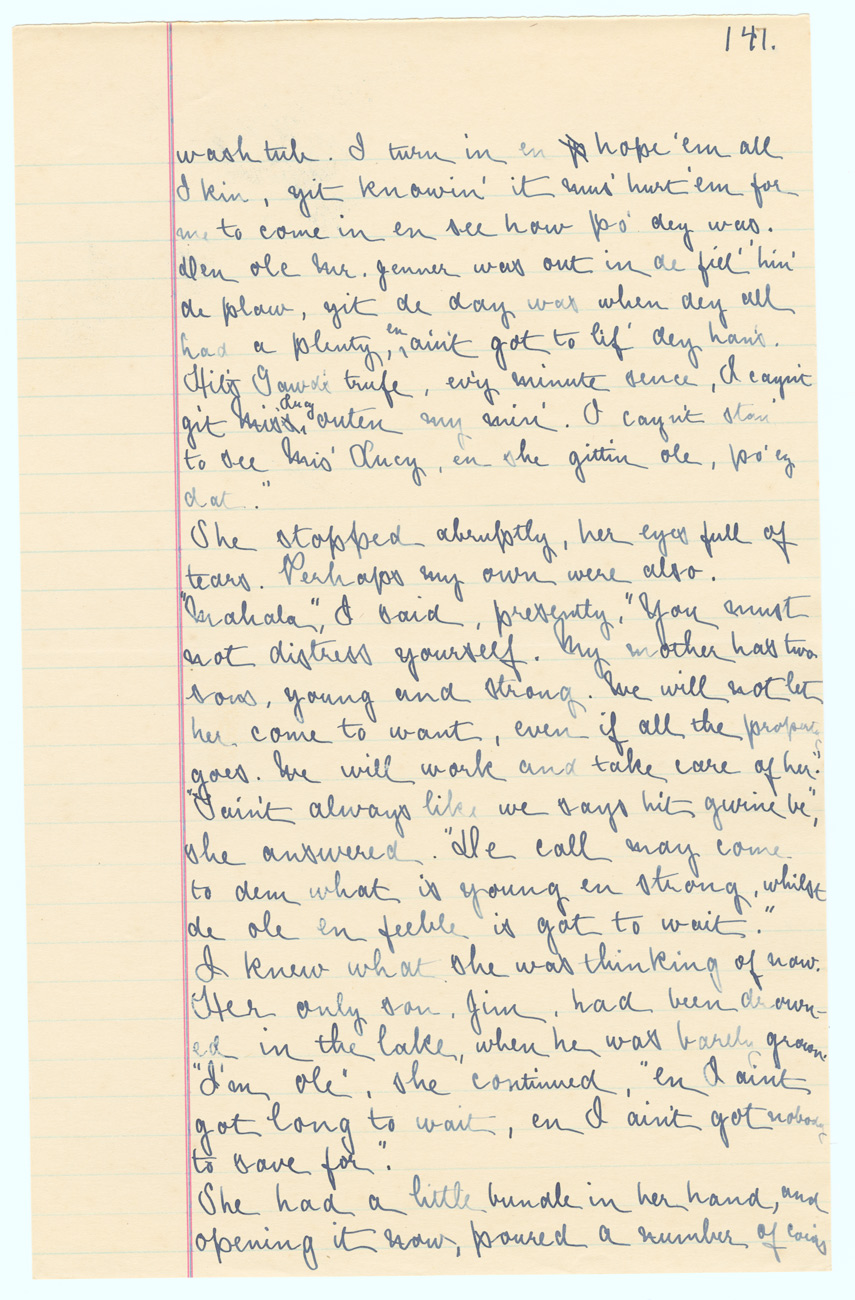 141.
wash tub. I turn in en hope 'em all
I kin, yit knowin' it mus' hurt 'em for
me to come in en see how po' dey was.
Den ole Mr. Jenner was out in de fiel' 'hin'
de plow, yit de day was when dey all
had a plenty, en ain't got to lif' dey han's.
Hit's Gawd's trufe, ev'y minute sence, I cayn't
git Miss Lucy outen my min'. I cayn't stan'
to see Mis' Lucy, en she gittin ole, po' ez
dat."
She stopped abruptly, her eyes full of
tears. Perhaps my own were also.
"Mahala", I said, presently, "You must
not distress yourself. My mother has two
sons, young and strong. We will not let
her come to want, even if all the property
goes. We will work and take care of her."
"'Tain't always like we says hit gwine be",
she answered. "De call may come
to dem what is young en strong, whilst
de ole en feeble is got to wait."
I knew what she was thinking of now.
Her only son, Jim, had been drown-
ed in the lake, when he was barely grown.
"I'm ole', she continued, "en I aint
got long to wait, en I ain't got nobody
to save for".
She had a little bundle in her hand, and
opening it now, poured a number of coins